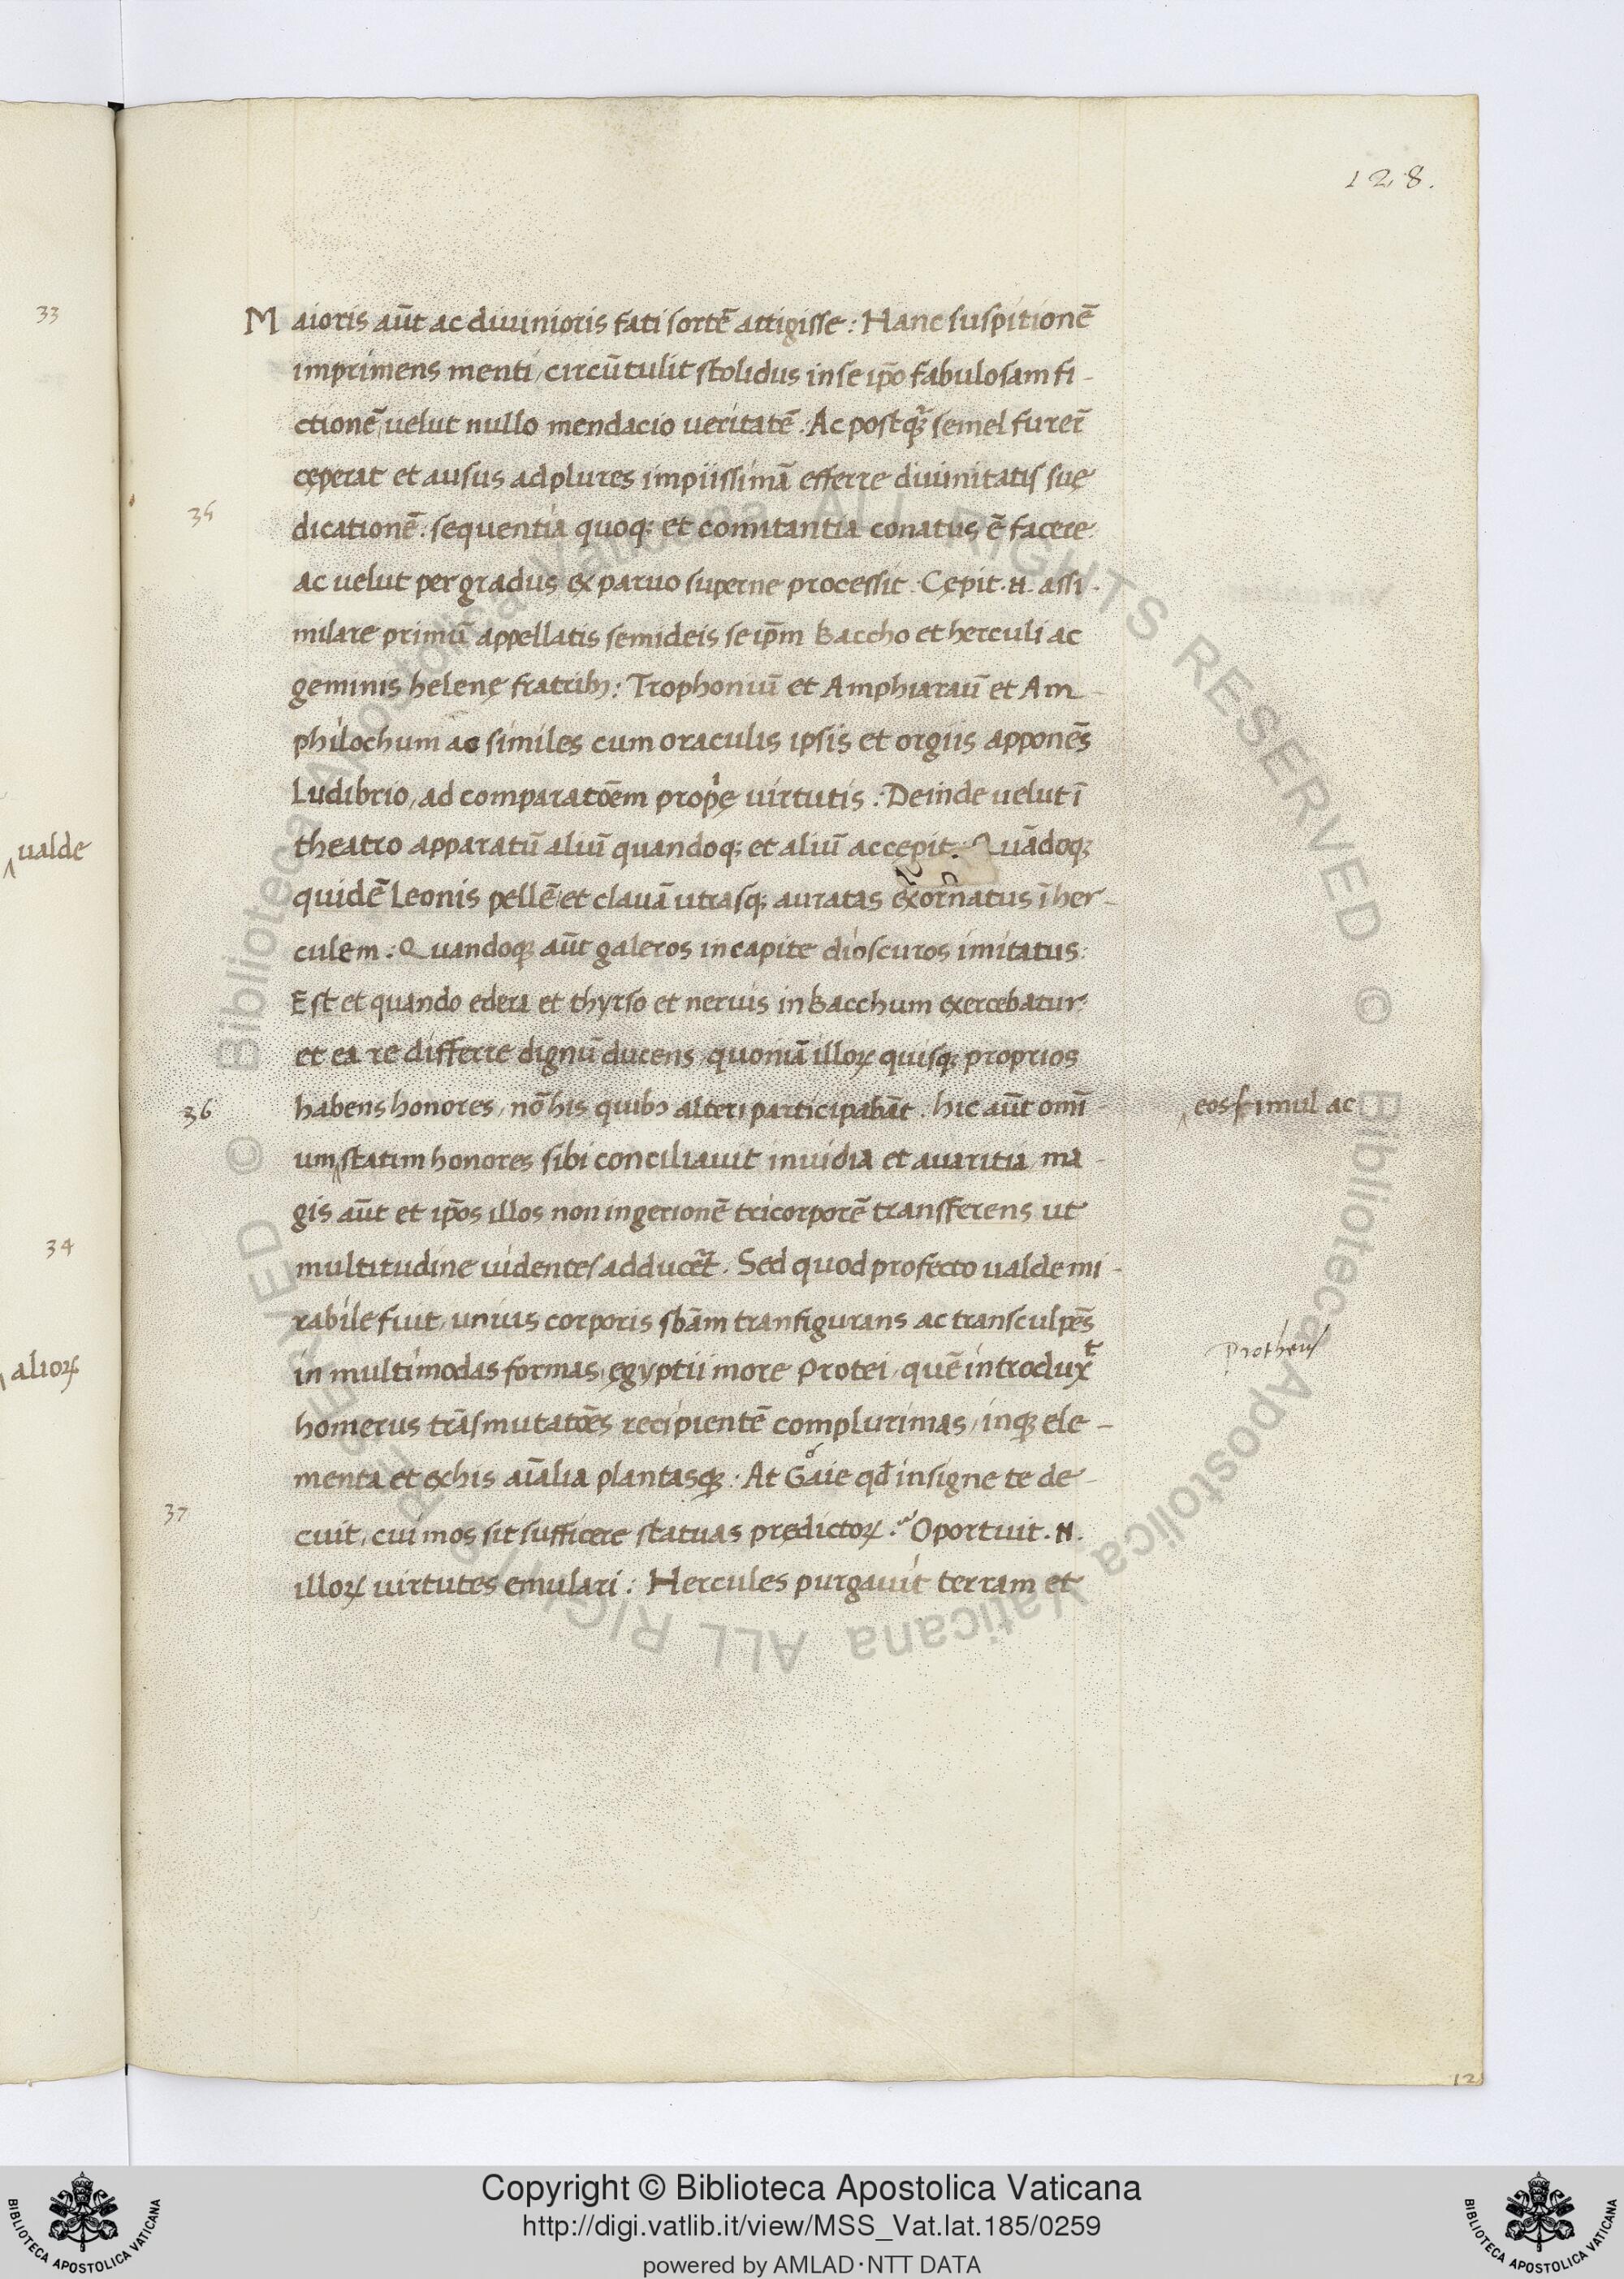 128.
33
Maioris aūt ac diuinioris fati sortē attigisse: Hanc suspitionē
imprimens menti, circūtulit stolidus in se ip̄o fabulosam fi-
ctionē, uelut nullo mendacio ueritatē. Ac postꝙ̄ semel furer̄
cęperat et ausus ad plures impiissimā efferre diuinitatis suę
35
dicationē: sequentia quoqꝫ et comitantia conatus ē facere:
ac uelut per gradus ex paruo superne processit. Cępit .N. assi-
milare primū appellatis semideis se ip̄m baccho et herculi ac
geminis helenę fratribꝫ: Trophoniū et Amphiaraū et Am-
philochum ac similes cum oraculis ipsis et orgiis apponēs
Ludibrio, ad comparatōem propͥę uirtutis: Deinde uelut ī
ualde
theatro apparatū aliū quandoqꝫ et aliū accepit. Quādoqꝫ
quidē Leonis pellē et clauā utrasqꝫ auratas exornatus ī her-
culem: Quandoqꝫ aūt galeros in capite dioscuros imitatus:
Est et quando edera et thyrso et neruis in bacchum exercebatur:
et ea re differre dignū ducens, quoniā illoꝝ quisqꝫ proprios
36
habens honores, nō his quibꝫ alteri participabāt. hic aūt omī-
eos simul ac
um statim honores sibi conciliauit inuidia et auaritia, ma-
gis aūt et ip̄os illos non in gerionē tricorporē transferens ut
34
multitudine uidentes adducēt. Sed quod profecto ualde mi-
rabile fuit, unius corporis sb̄am tranfigurans ac transculpēs
in multimodas formas, egyptii more Protei, quē introduxᵗ
Protheus
alioꝝ
homerus trāsmutatōes recipientē complurimas, inqꝫ ele-
menta et ex his aīalia plantasqꝫ. At Gͦaie qđ insigne te de-
37
cuit, cui mos sit sufficere statuas prędictoꝝ? Oportuit .N.
illoꝝ uirtutes emulari: Hercules purgauit terram et
12
© Biblioteca Apostolica Vaticana ALL RIGHTS RESERVED © Biblioteca Apostolica Vaticana ALL RIGHTS RESERVED
BIBLIOTECA APOSTOLICA VATICANA
Copyright © Biblioteca Apostolica Vaticana
http://digi.vatlib.it/view/MSS_Vat.lat.185/0259
powered by AMLAD·NTT DATA
BIBLIOTECA APOSTOLICA VATICANA